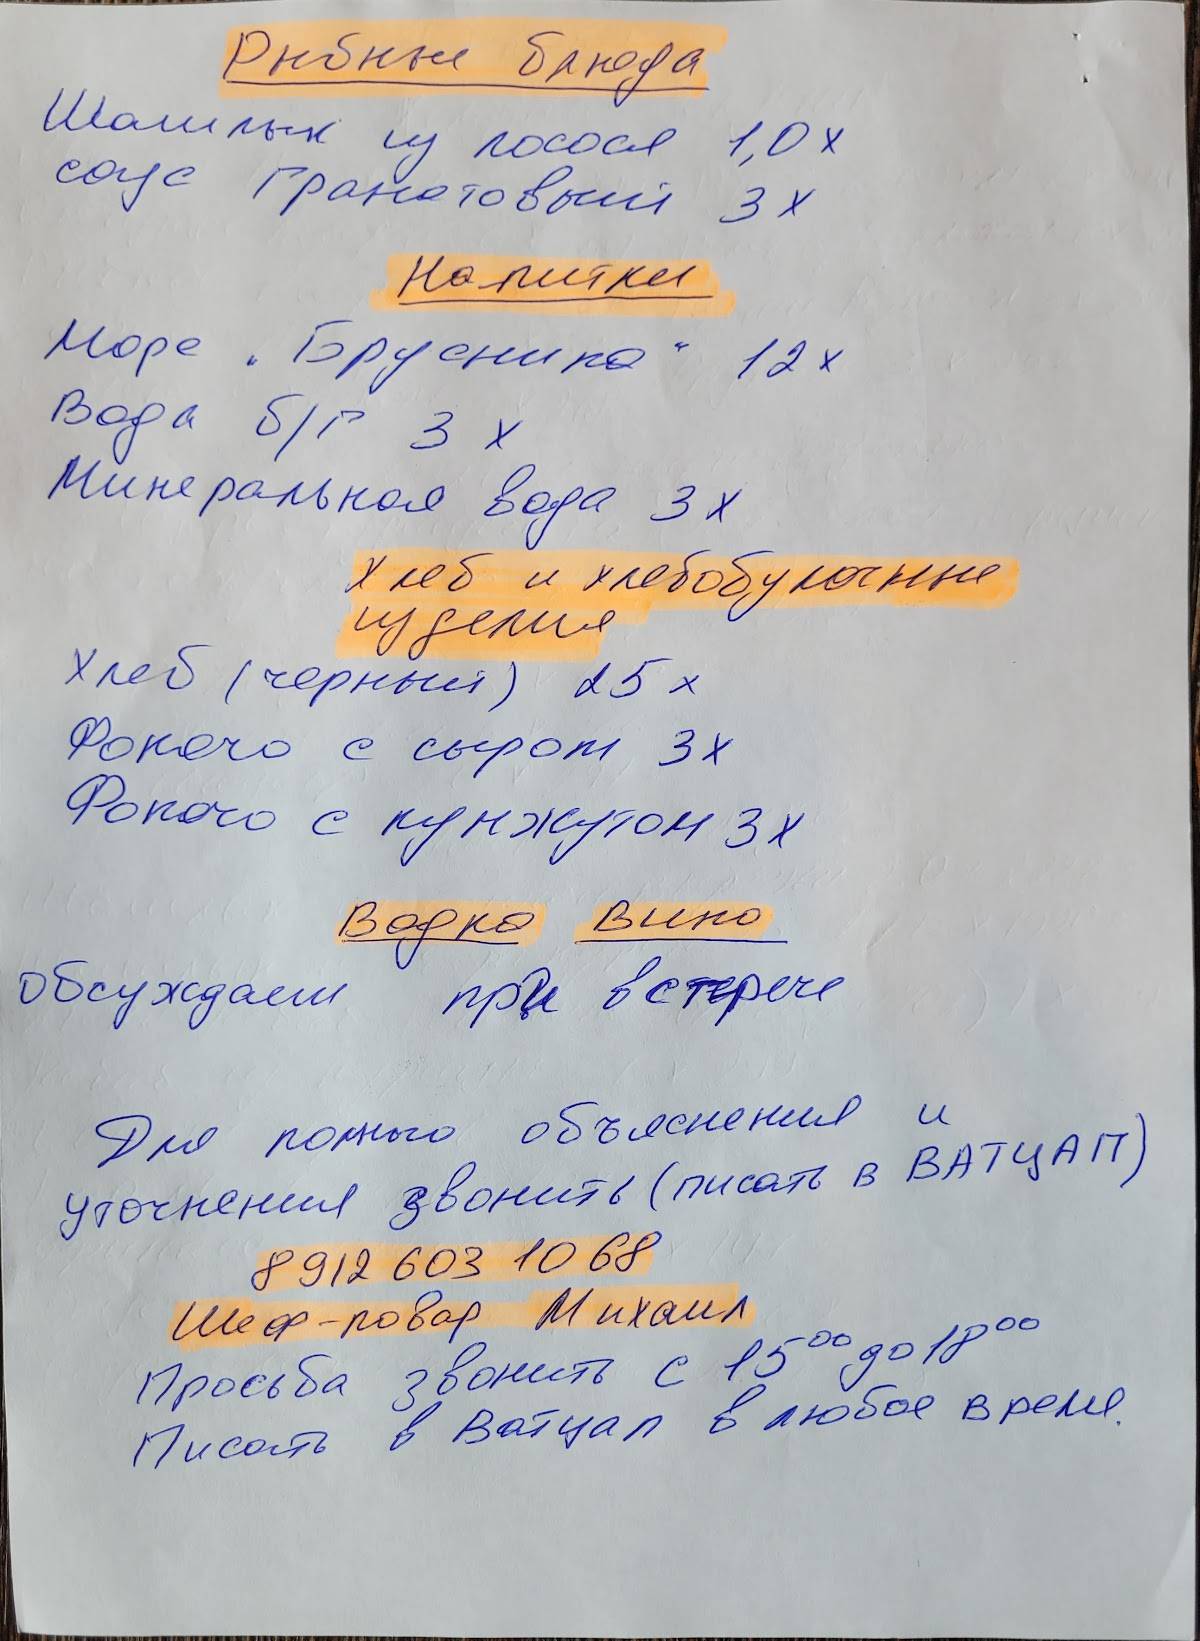 Рыбные блюда
Шашлык из лосося 1,0 х
соус Гранатовый 3 х
Напитки
Морс „Брусника" 12 х
Вода б/г 3 х
Минеральная вода 3 х
Хлеб и хлебобулочные
изделия
Хлеб (черный) 25 х
Фокачо с сыром 3х
Фокачо с кунжутом 3х
Водка Вино
обсуждаем при встерече
Для полного объяснения и
уточнения звонить (писать в ВАТЦАП)
8912 603 10 68
Шеф-повар Михаил
Просьба звонить с 15⁰⁰ до 18⁰⁰
Писать в Ватцап в любое время.